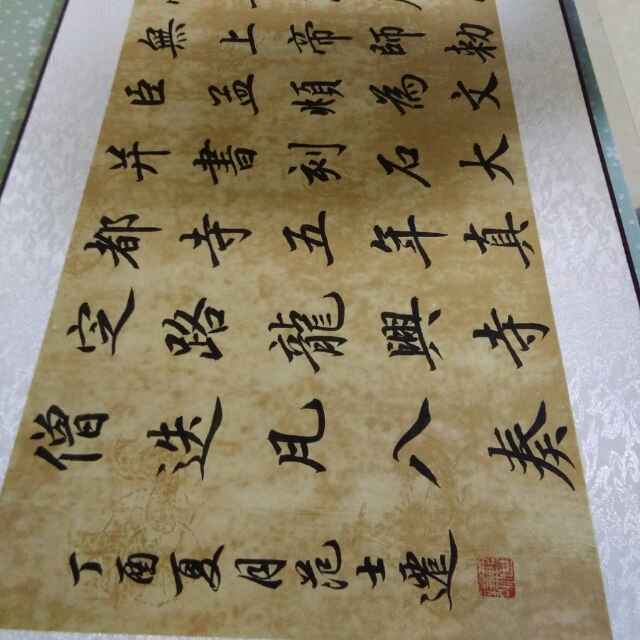 無上帝師勅
臣孟頫為文
并書刻石大
都寺五年真
定路龍興寺
僧迭凡八奏
丁酉夏月范士